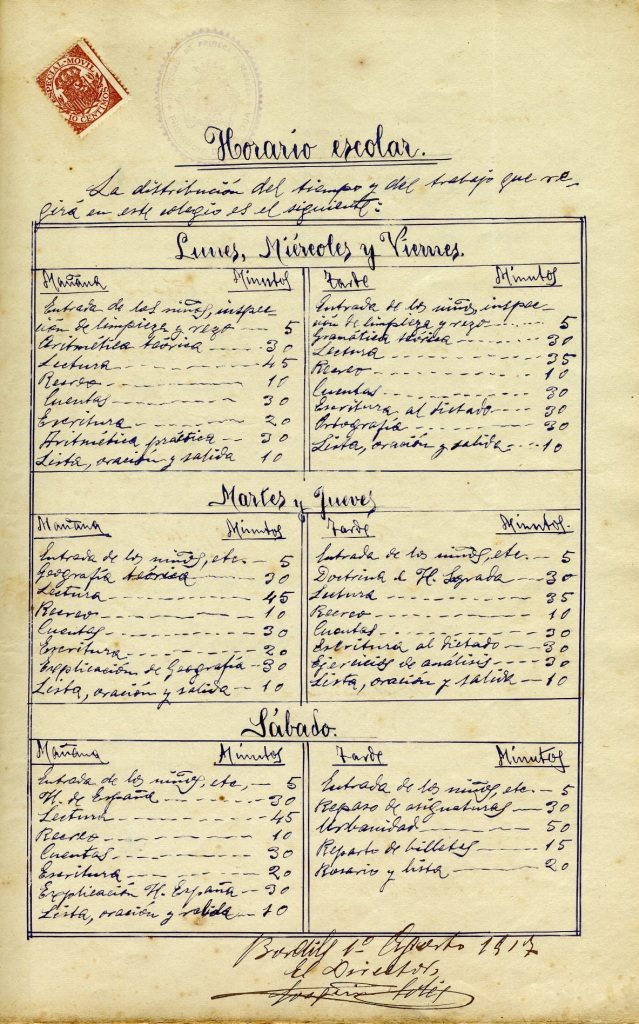 ESPECIAL MOVIL
10 CENTIMOS
Horario escolar.
La distribución del tiempo y del trabajo que re-
girá en este colegio es el siguiente:
Lunes, Miércoles y Viernes.
Mañana Minutos
Entrada de los niños, inspec-
ción de limpieza y rezo 5
Aritmética teórica 30
Lectura 45
Recreo 10
Cuentas 30
Escritura 20
Aritmética práctica 30
Lista, oración y salida 10
Tarde Minutos
Entrada de los niños, inspec-
ción de limpieza y rezo 5
Gramática teórica 30
Lectura 35
Recreo 10
Cuentas 30
Escritura al dictado 30
Ortografía 30
Lista, oración y salida 10
Martes y Jueves
Mañana Minutos
Entrada de los niños, etc. 5
Geografía teórica 30
Lectura 45
Recreo 10
Cuentas 30
Escritura 20
Explicación de Geografía 30
Lista, oración y salida 10
Tarde Minutos.
Entrada de los niños, etc. 5
Doctrina é H. Sagrada 30
Lectura 35
Recreo 10
Cuentas 30
Escritura al dictado 30
Ejercicios de análisis 30
Lista, oración y salida 10
Sábado.
Mañana Minutos
Entrada de los niños, etc, 5
H. de España 30
Lectura 45
Recreo 10
Cuentas 30
Escritura 20
Explicación H. España 30
Lista, oración y salida 10
Tarde Minutos
Entrada de los niños, etc. 5
Repaso de asignaturas 30
Urbanidad 50
Reparto de billetes 15
Rosario y lista 20
Bordils 1º Agosto 1917
El Director,